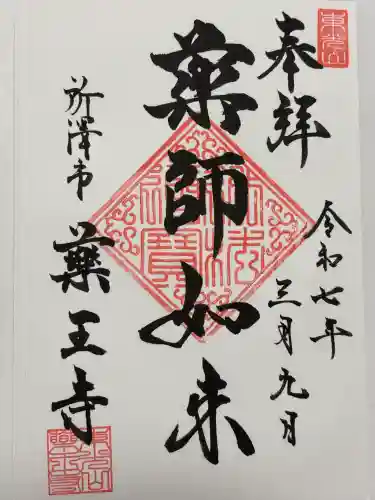 東光山
奉拝
令和七年
三月九日
薬師如来
所澤市
薬王寺